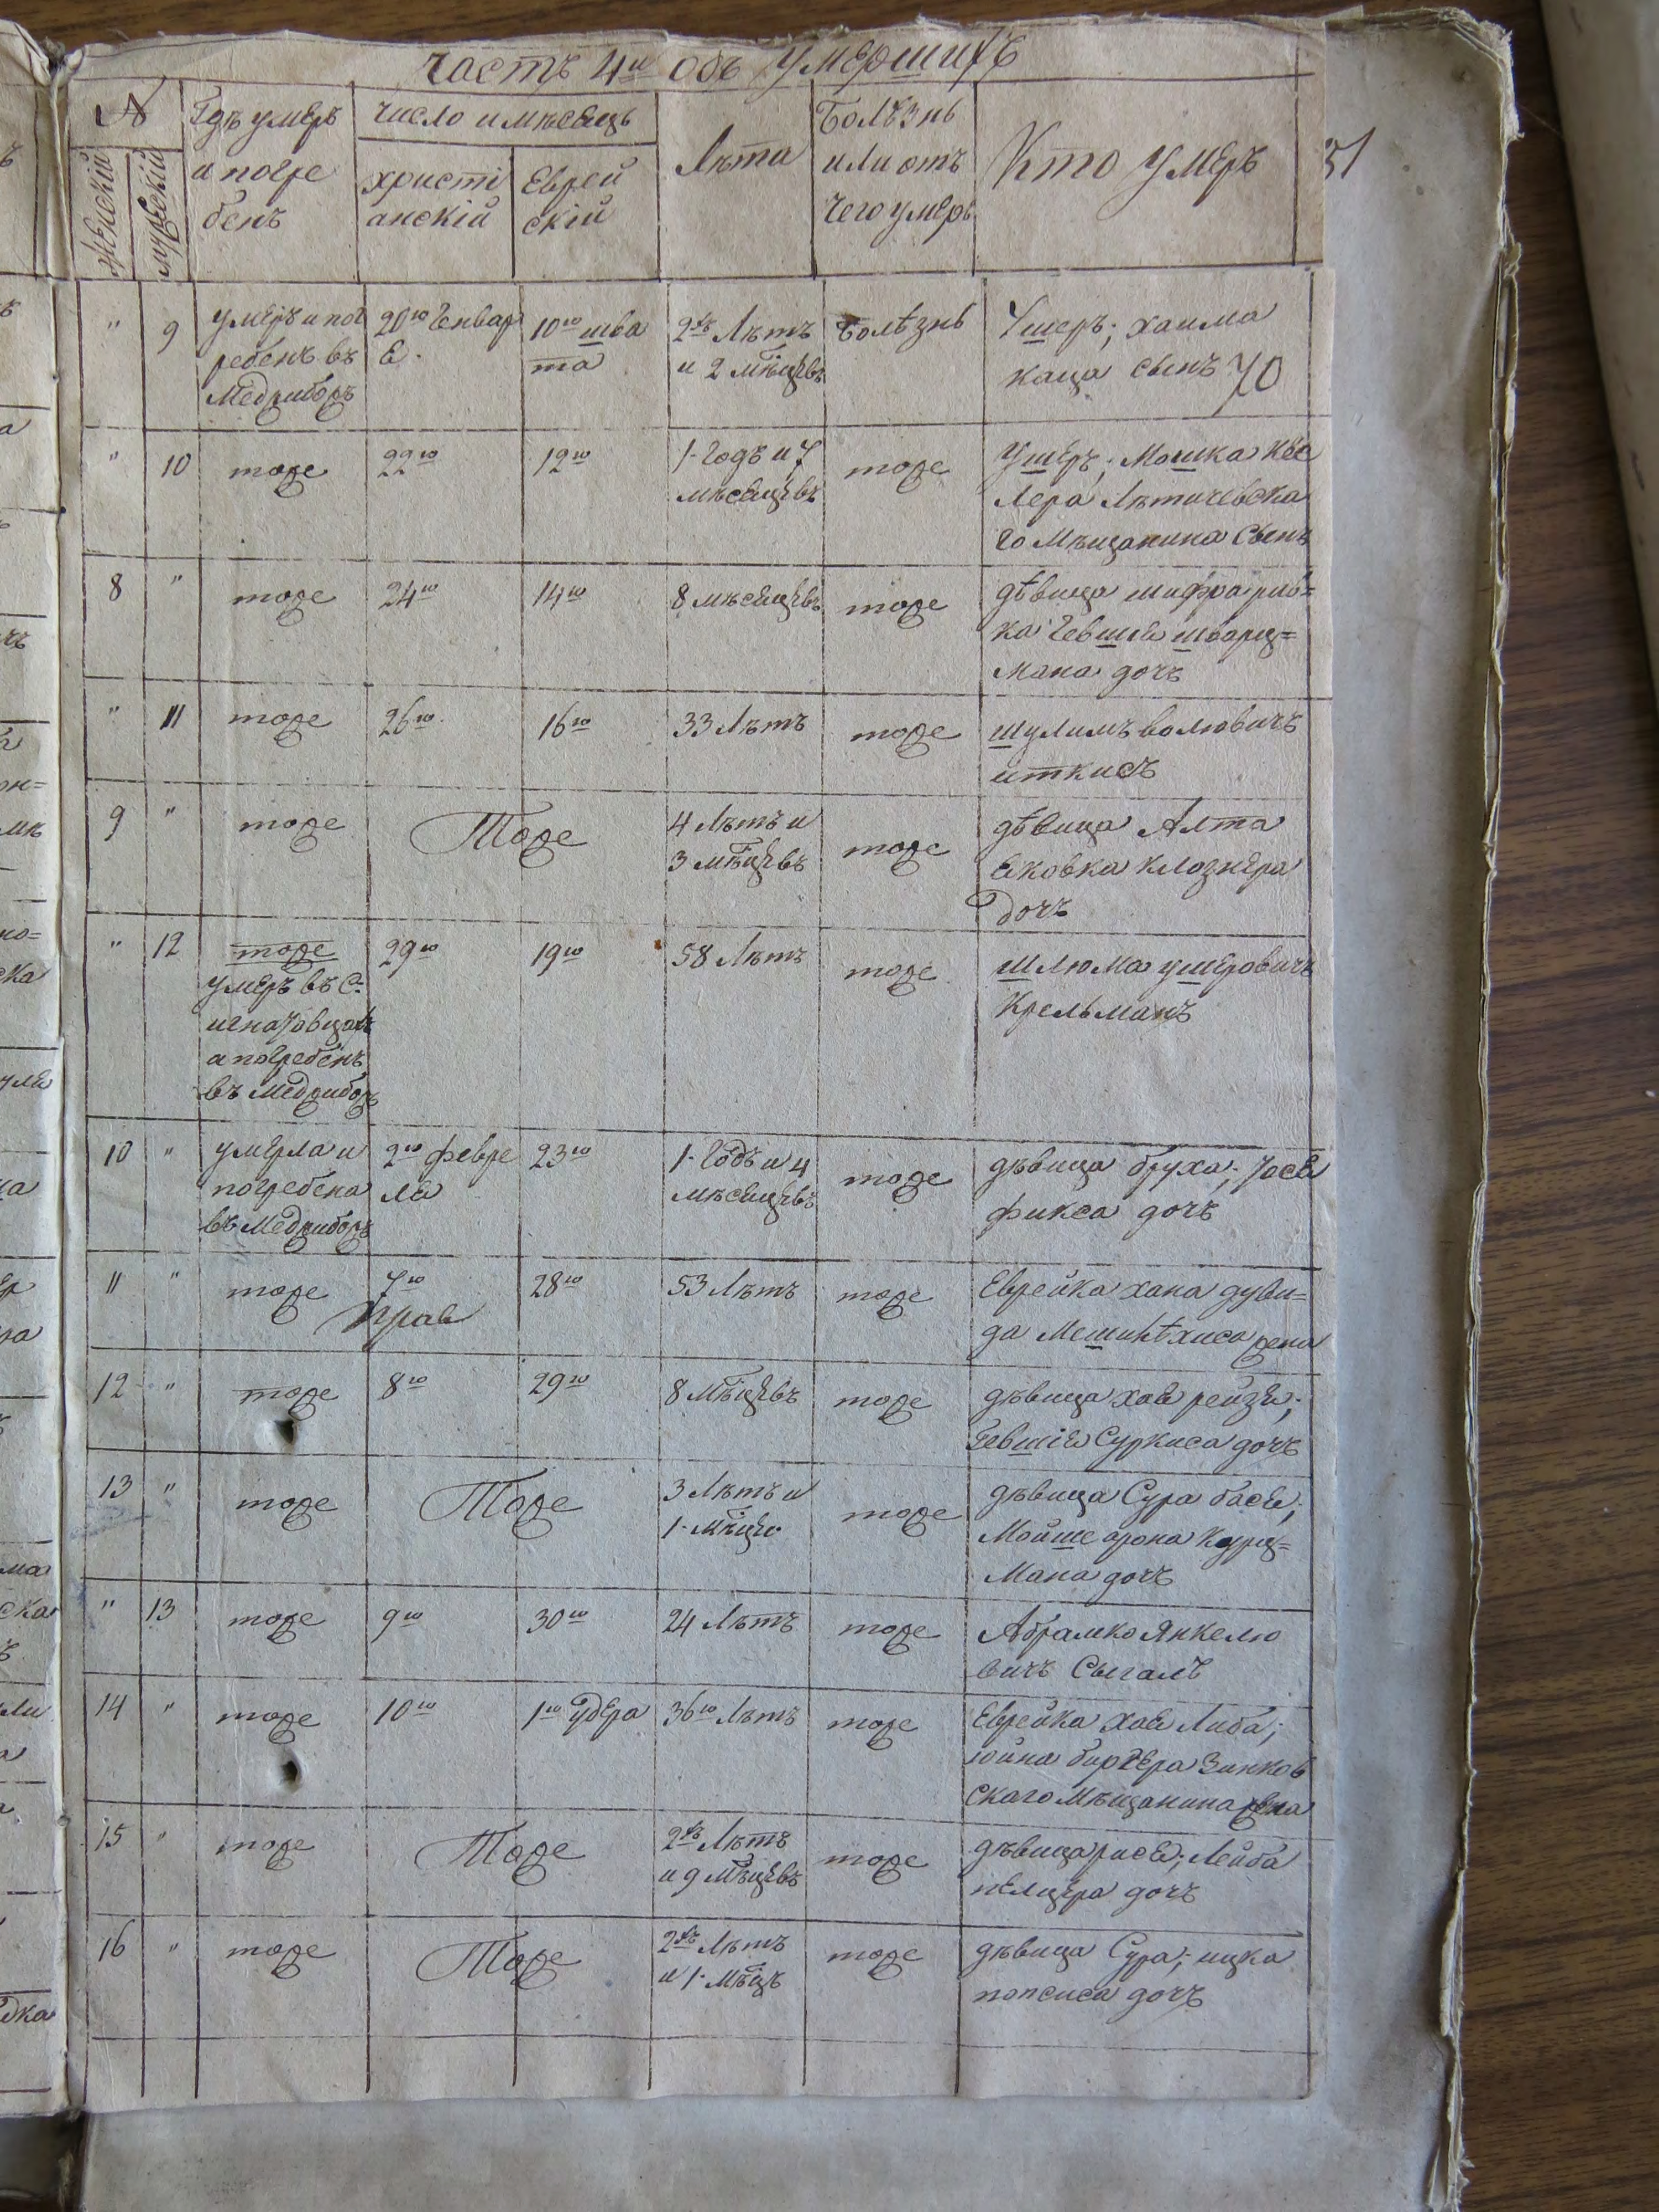 Часть 4я Объ Умершихъ
№
Женскій
мужескій
Гдѣ умеръ
и погре
бенъ
Число и мѣсецъ
христі
анскій
Еврей
скій
Лѣта
Болѣзнь
или отъ
чего умеръ
Кто умеръ
31
" 9
умеръ и пог
ребенъ въ
Меджибожъ
20го Генвар
е.
10го шва
та
2хъ Лѣтъ
и 2 мѣцевъ
болѣзнь
Ушеръ; хаима
каца сынъ
70
" 10
тоже
22го
12го
1. Годъ и 7
мѣсецевъ
тоже
Ушеръ; Мошка Кес
лера Лѣтичевска
го Мѣщанина Сынъ
8 "
тоже
24го
14го
8 мѣсецевъ
тоже
дѣвица шифра рив=
ка Гевшіе шварц=
мана дочъ
" 11
тоже
26го.
16го
33 Лѣтъ
тоже
шулимъ волювичъ
иткисъ
9 "
тоже
Тоже
4 Лѣтъ и
3 мѣцевъ
тоже
дѣвица Алта
ековка клознера
дочъ
" 12
тоже
умеръ въ С.
а погребенъ
въ Меджибожъ
29го
19го
58 Лѣтъ
тоже
шлюма ушеровичъ
Крельманъ
10 "
умерла и
погребена
въ Меджибожъ
2го февре
ле
23го
1. Годъ и 4
мѣсецевъ
тоже
дѣвица бруха; Юсе
фикса дочъ
11 "
тоже
7го
28го
53 Лѣтъ
тоже
Еврейка хана дуви=
да жена
12 "
тоже
8го
29го
8 Мѣцевъ
тоже
дѣвица хае рейзе;
Гевшіе Суркиса дочъ
13 "
тоже
Тоже
3 Лѣтъ и
1. мѣцъ
тоже
дѣвица Сура басе;
Мойше арона Курц=
Мана дочъ
" 13
тоже
9го
30го
24 Лѣтъ
тоже
Абрамко Янкелю
вичъ Сыгалъ
14 "
тоже
10го
1го Удера
36го Лѣтъ
тоже
Еврейка хае Либа;
юйна Зинков
скаго Мѣщанина жена
15 "
тоже
Тоже
2хъ Лѣтъ
и 9 Мѣцевъ
тоже
дѣвица рисе; Лейба
пелцера дочъ
16 "
тоже
Тоже
2хъ Лѣтъ
и 1. Мѣцъ
тоже
дѣвица Сура; ицка
попсиса дочъ